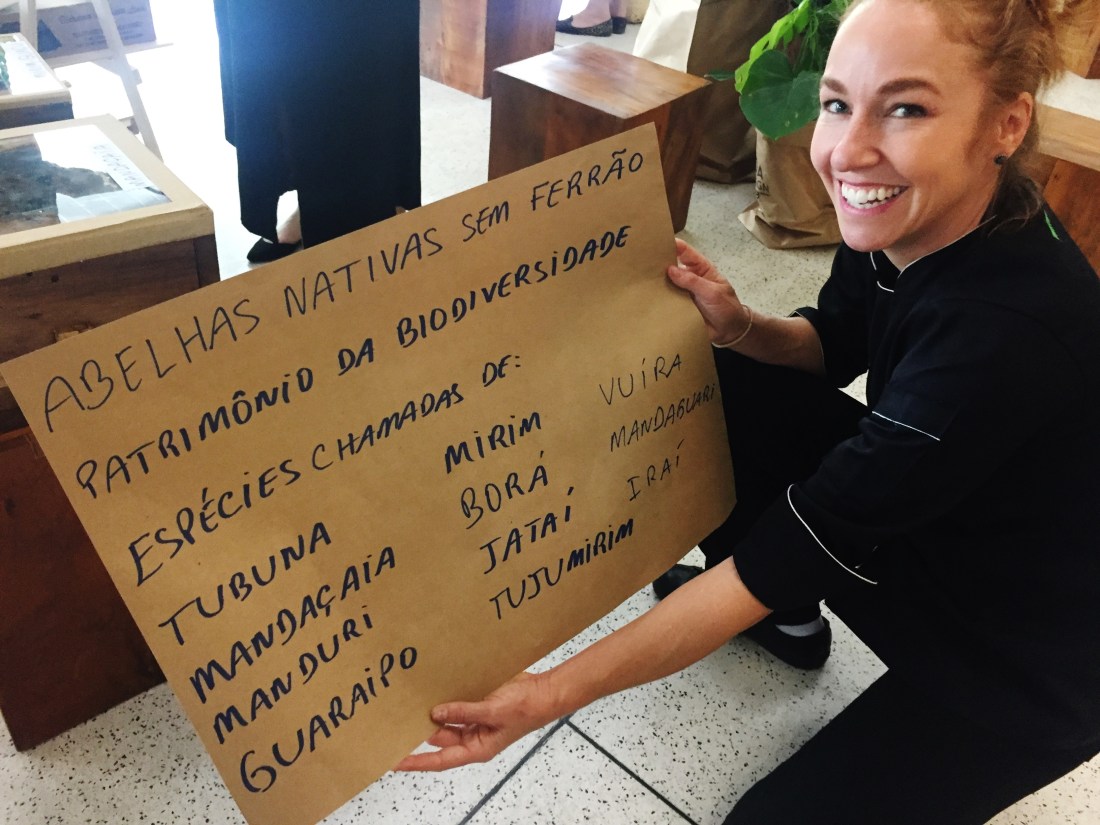 ABELHAS NATIVAS SEM FERRÃO
PATRIMÔNIO DA BIODIVERSIDADE
ESPÉCIES CHAMADAS DE:
TUBUNA
MANDAÇAIA
MANDURI
GUARAIPO
MIRIM
BORÁ
JATAÍ
TUJUMIRIM
VUÍRA
MANDAGUARI
IRAÍ